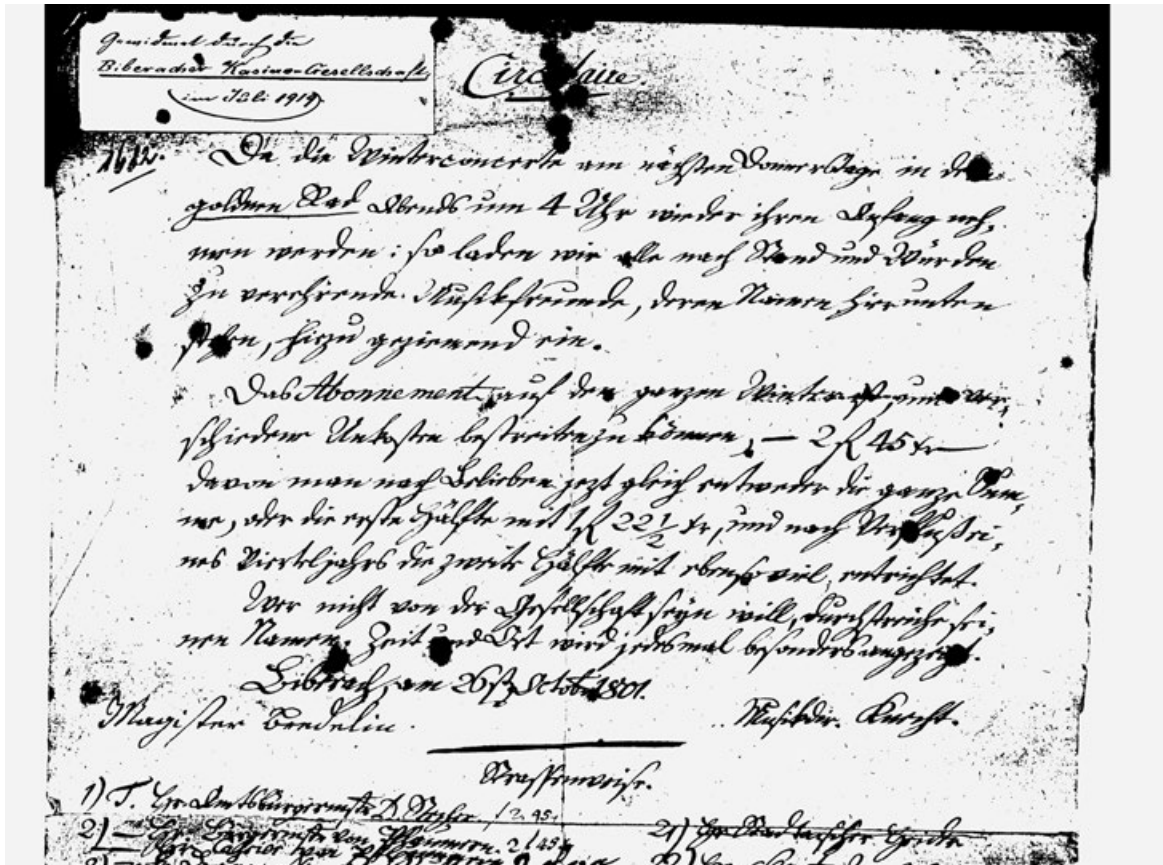 Gewidmet durch die
Biberacher Kasino-Gesellschaft
im Juli 1919
Circulaire
1682.
Da die Winterconcerte am nächsten Donnerstage in dem
goldnen Rad Abends um 4 Uhr wieder ihren Anfang neh-
men werden: so laden wir alle nach Stand und Würden
zu verehrende Musikfreunde, deren Namen hier unten
stehen, hiezu geziemend ein.
Das Abonnement auf den ganzen Winter ist, um ver-
schiedene Unkosten bestreiten zu können, — 2 f 45 xr —
davon man nach Belieben jezt gleich entweder die ganze Sum-
me, oder die erste Hälfte mit 1 f 22 1/2 xr, und nach Verfluß ei-
nes Vierteljahrs die zweite Hälfte mit ebensoviel entrichtet.
Wer nicht von der Gesellschaft seyn will, durchstreiche sei-
nen Namen. Zeit und Ort wird jedesmal besonders angezeigt.
Biberach, am 26st October 1801.
Magister Bredelin. Musikdir. Knecht.
Strassenweise.
1) T. Hr. Amtsbürgermstr D. Stecher / 2. 45.
2) — Hr. Bürgermstr von Pflummern. 2 f 45
21) Hr.